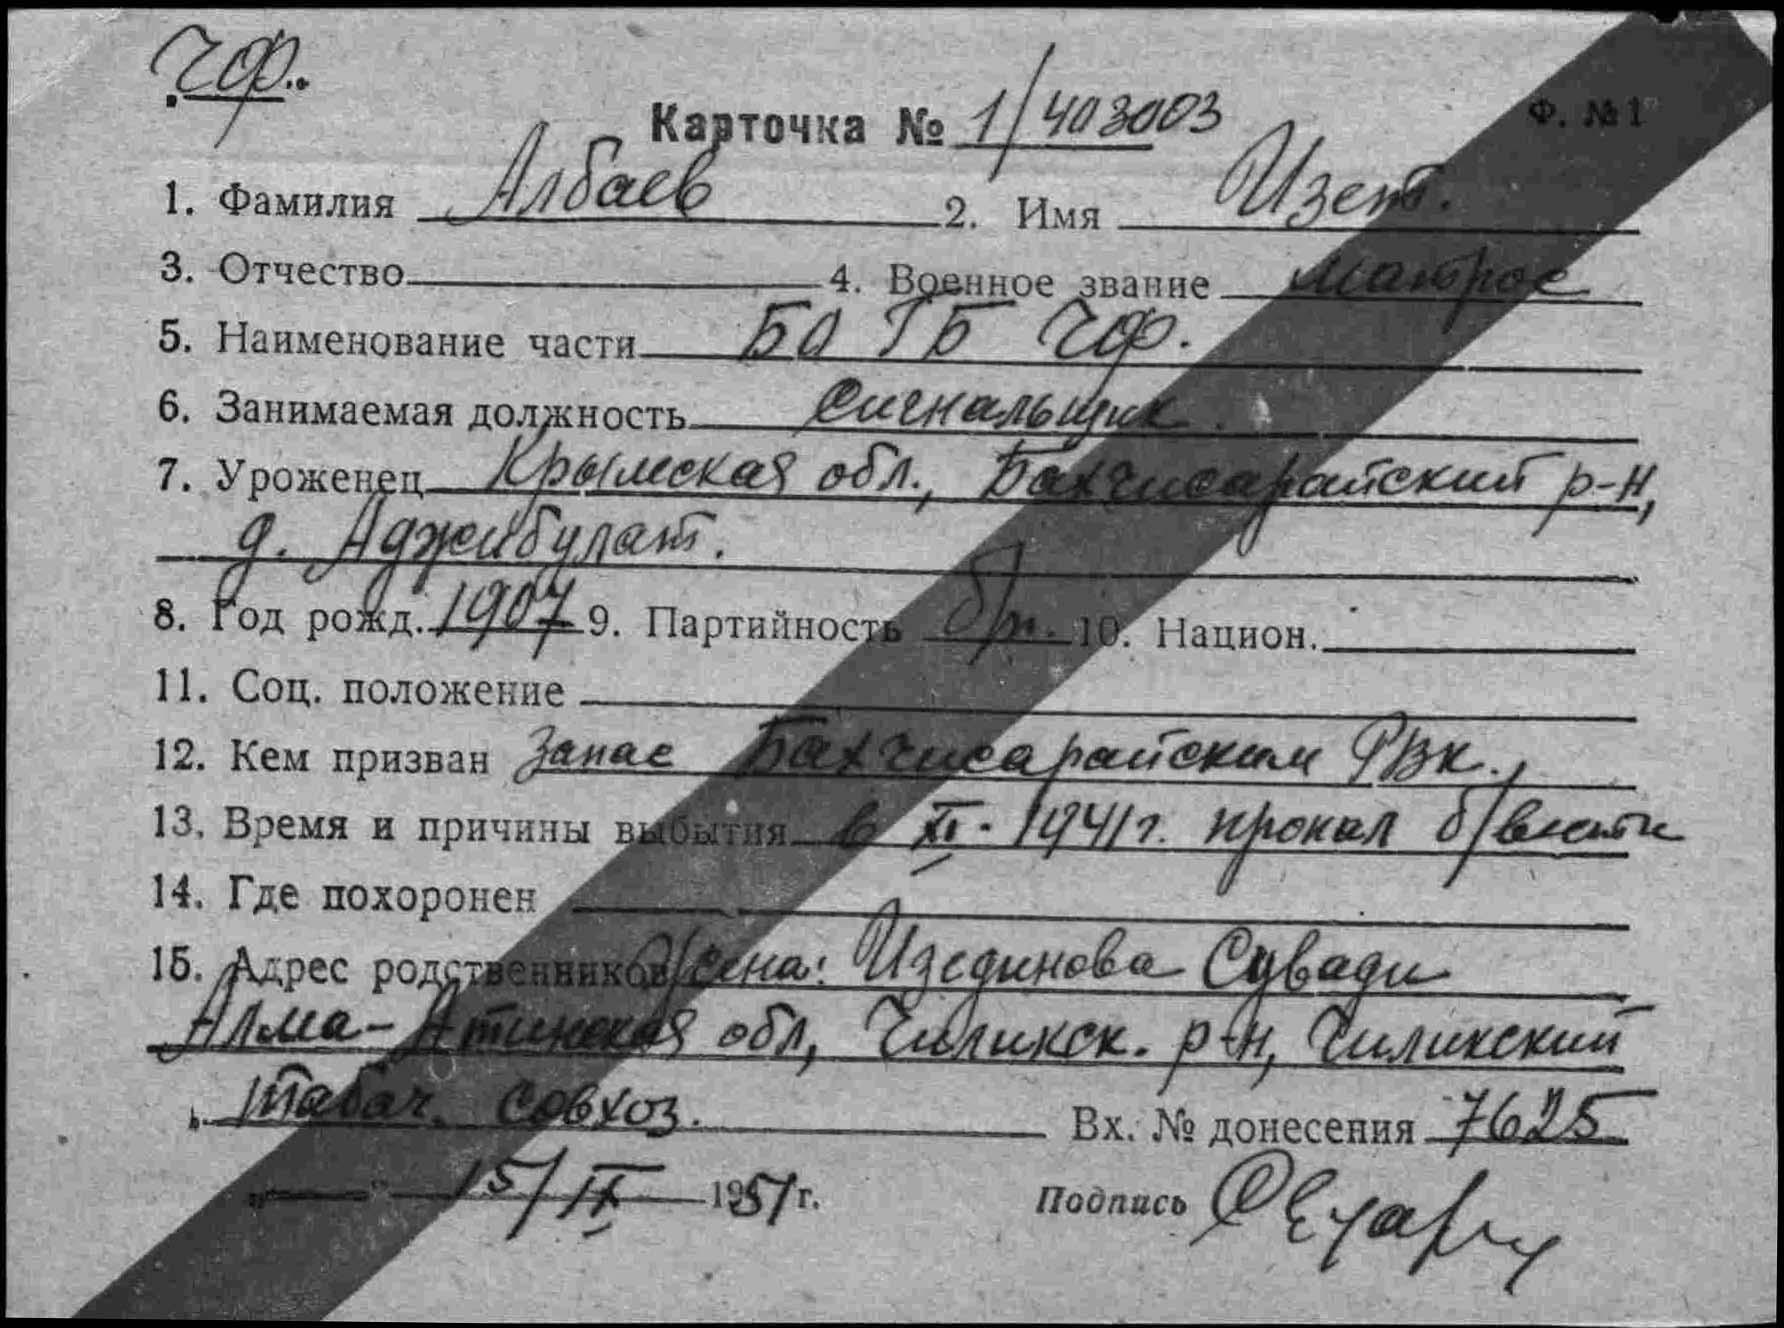 ЧФ.
Карточка № 1/403003
Ф. №1
1. Фамилия Албаев 2. Имя Изет.
3. Отчество 4. Военное звание матрос
5. Наименование части БО ГБ ЧФ.
6. Занимаемая должность Сигнальщик.
7. Уроженец Крымская обл., Бахчисарайский р-н,
д. Аджибулат.
8. Год рожд. 1907 9. Партийность б/п. 10. Национ.
11. Соц. положение
12. Кем призван Запас Бахчисарайским РВК.
13. Время и причины выбытия в XI. 1941 г. пропал б/вести
14. Где похоронен
15. Адрес родственников Жена: Изединова Сувади
Алма-Атинская обл, Чиликск. р-н, Чиликский
табач. совхоз. Вх. № донесения 7625
„ “ 15/IX 1951 г. Подпись